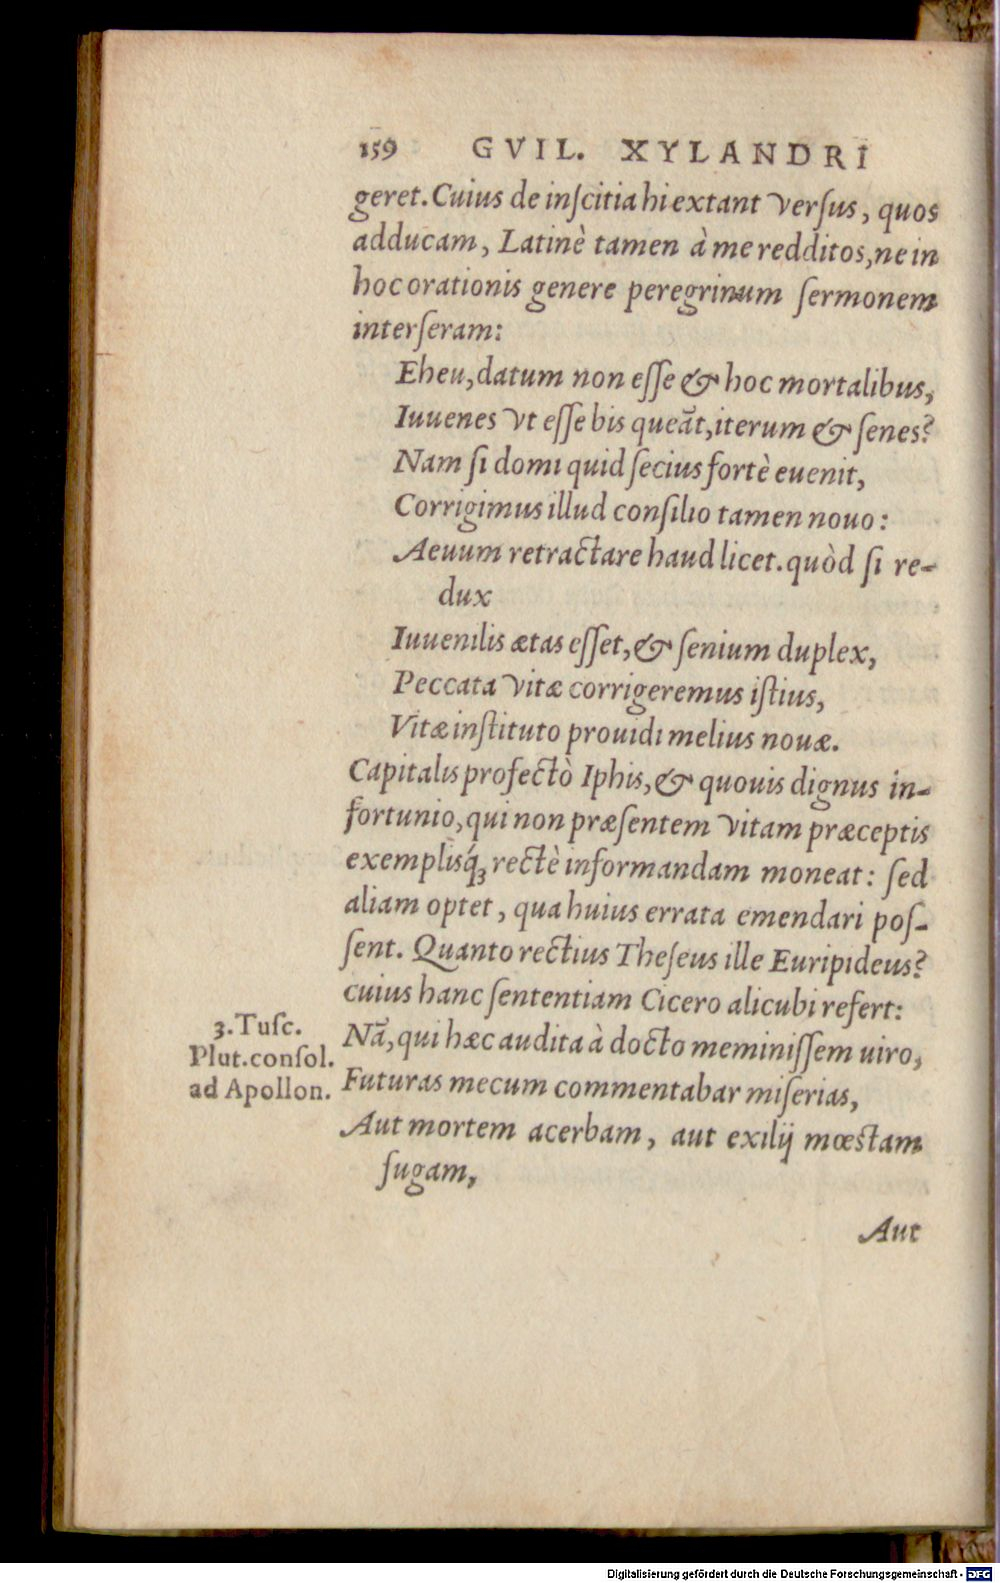 159 GVIL. XYLANDRI
geret. Cuius de inſcitia hi extant verſus, quos
adducam, Latinè tamen à me redditos, ne in
hoc orationis genere peregrinum ſermonem
interſeram:
Eheu, datum non eſſe & hoc mortalibus,
Iuuenes vt eſſe bis queāt, iterum & ſenes?
Nam ſi domi quid ſecius fortè euenit,
Corrigimus illud conſilio tamen nouo:
Aeuum retractare haud licet. quòd ſi re-
dux
Iuuenilis ætas eſſet, & ſenium duplex,
Peccata vitæ corrigeremus iſtius,
Vitæ inſtituto prouidi melius nouæ.
Capitalis profectò Iphis, & quouis dignus in-
fortunio, qui non præſentem vitam præceptis
exemplisq́ꝫ rectè informandam moneat: ſed
aliam optet, qua huius errata emendari poſ-
ſent. Quanto rectius Theſeus ille Euripideus?
cuius hanc ſententiam Cicero alicubi refert:
3. Tuſc.
Plut. conſol.
ad Apollon.
Nā, qui hæc audita à docto meminiſſem uiro,
Futuras mecum commentabar miſerias,
Aut mortem acerbam, aut exilij mœstam
fugam,
Aut
Digitalisierung gefördert durch die Deutsche Forschungsgemeinschaft - DFG